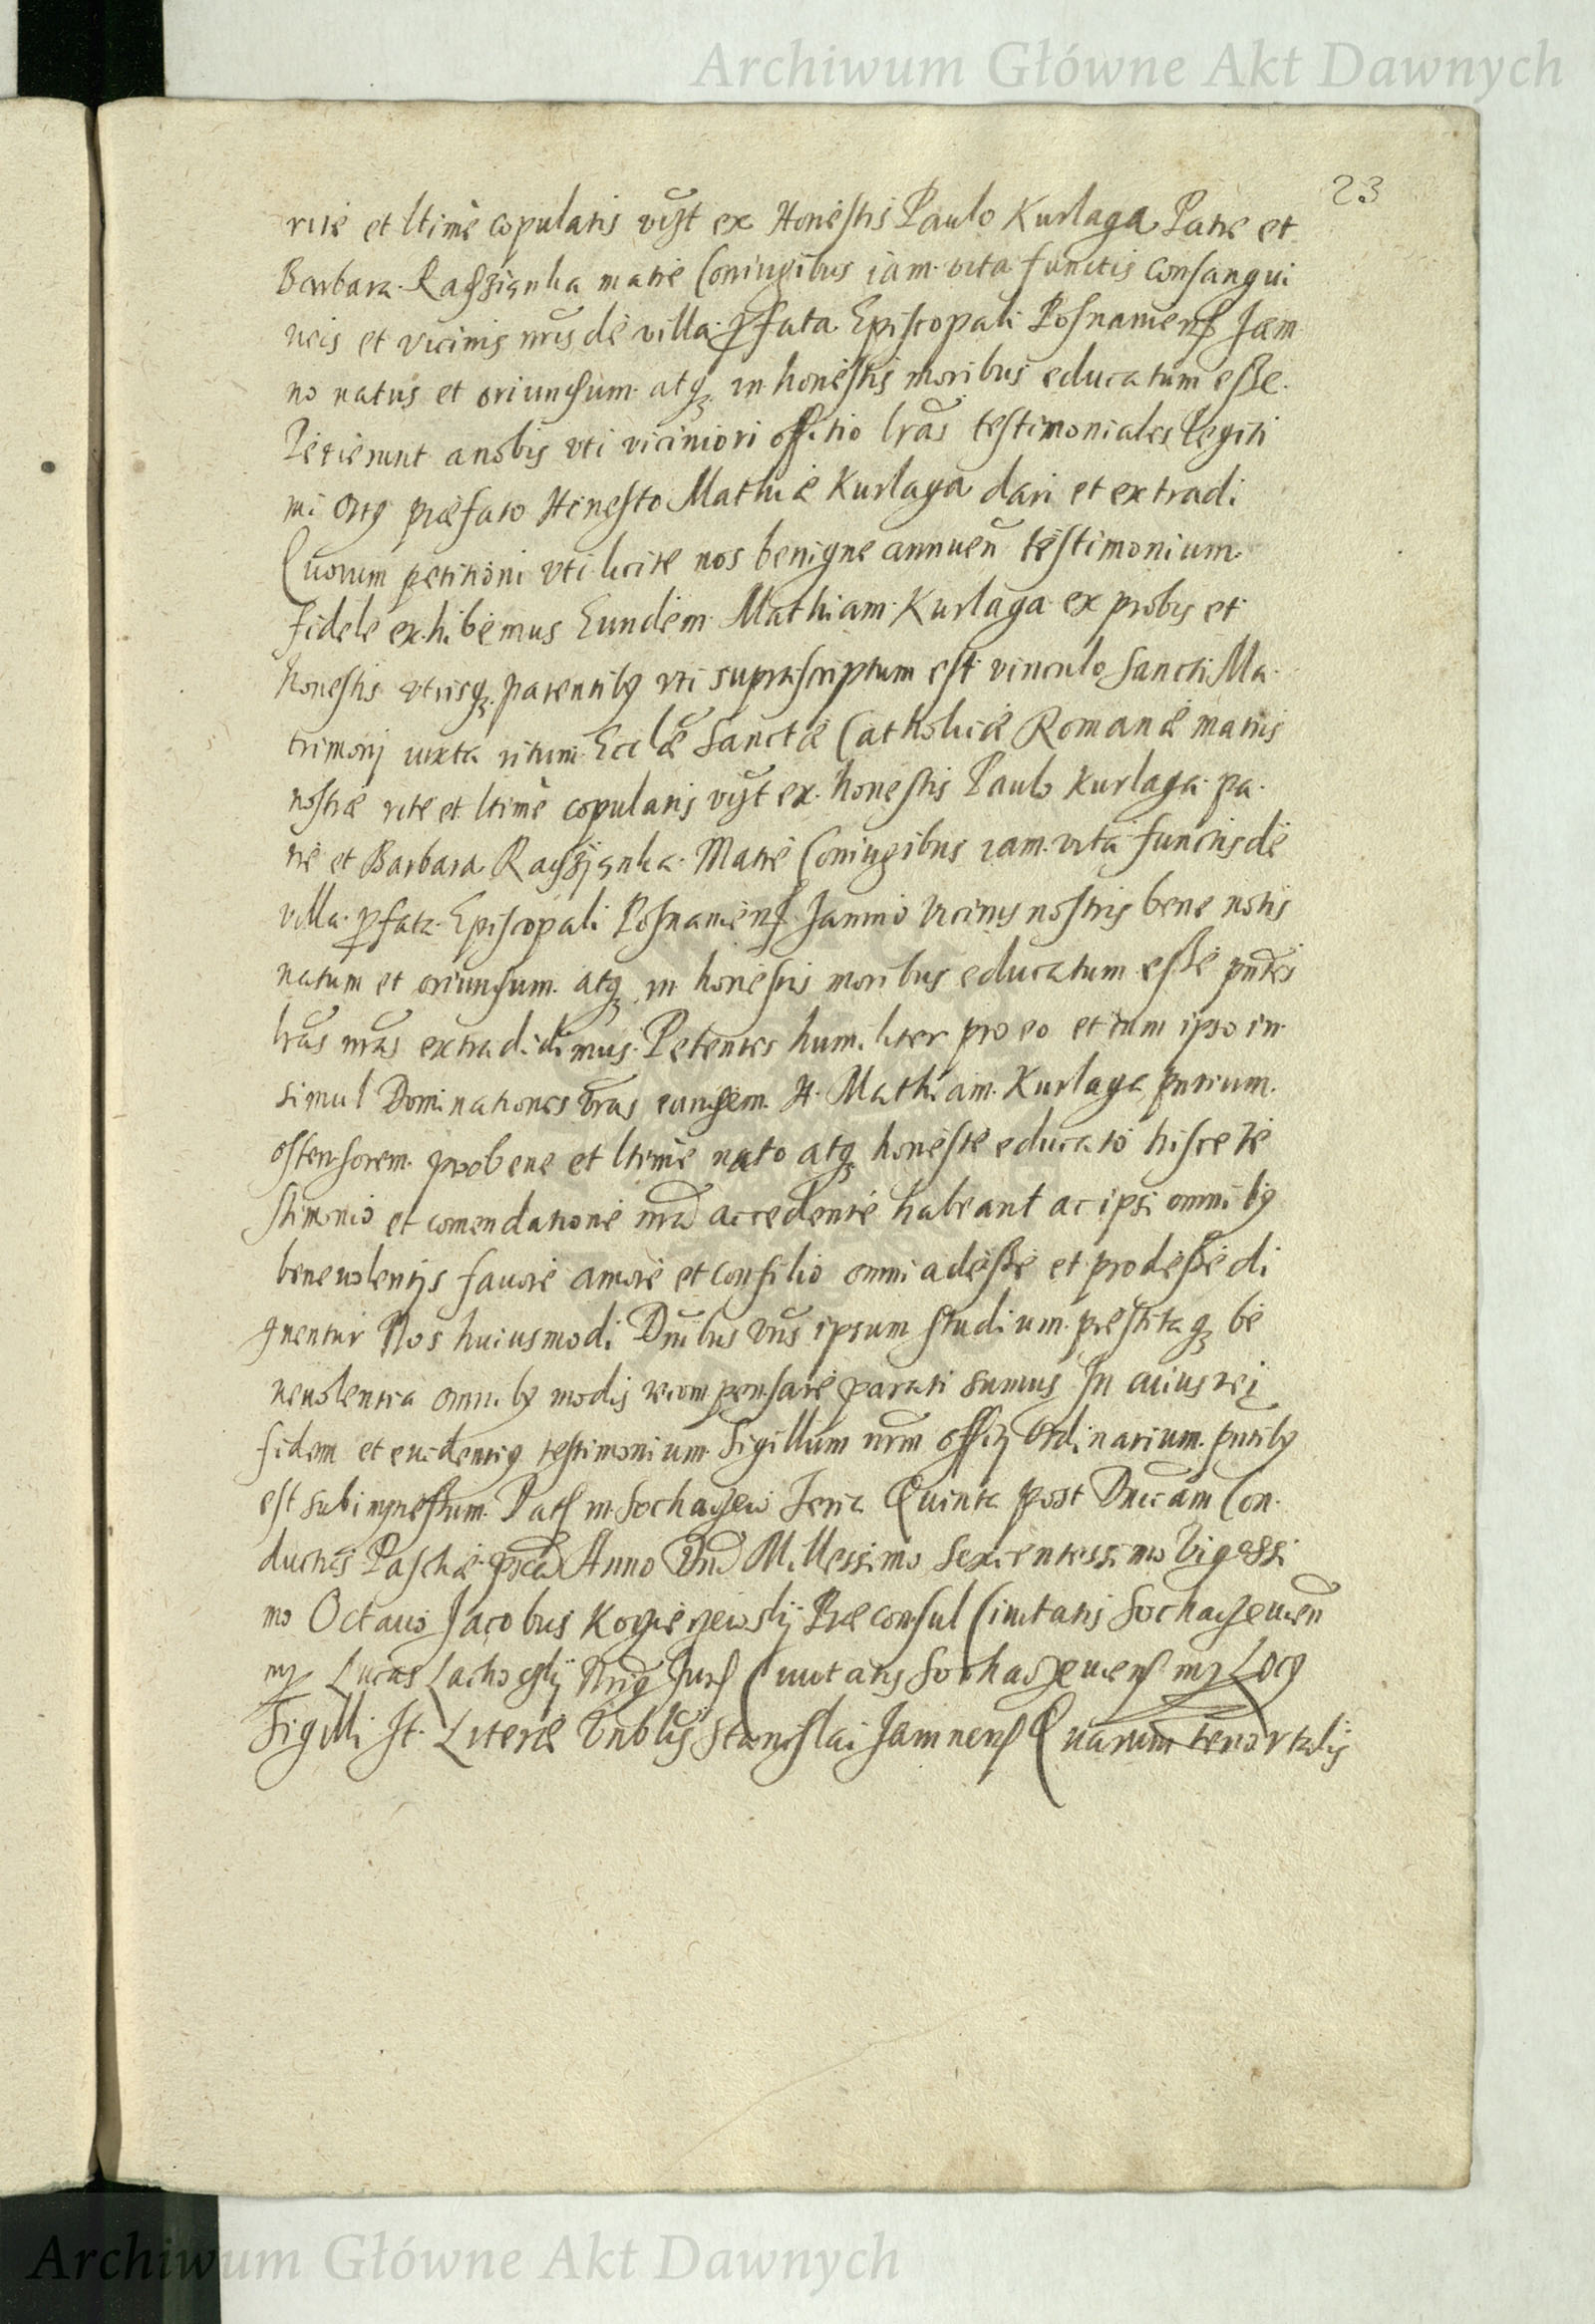 Archiwum Główne Akt Dawnych
23
rite et ltimè copulatis vt̃ ex Honestis Paulo Kurlaga Patre et
Barbara matre Coniugibus iam vita functis Consangui
neis et vicinis nris de villa pfata Episcopali Posnamens Jam
no natus et oriundum atq in honestis moribus educatum esse
Petierunt a nobis vti viciniori offitio lrãs testimoniales Legiti
mi Ortg præfato Honesto Mathiæ Kurlaga dari et extradi
Quorum petitioni vti licite nos benigne annuen̄ testimonium
fidele exhibemus Eundem Mathiam Kurlaga ex probis et
honestis vtrisq parentibq vti suprascriptum est vinculo Sancti Ma
trimonij iuxta ritum Ecclæ Sanctæ Catholicæ Romanæ matris
nostræ rite et ltimè copulatis ex honestis Paulo Kurlaga pa
tre et Barbara Matre Coniugibus iam vita functis de
villa pfata Episcopali Posnamens Jamno vicinis nostris bene notis
natum et oriundum atq in honestis moribus educatum esse pntes
lrãs nrãs extradidimus Petentes humiliter pro eo et cum ipso in
simul Dominationes vrãs eundem H. Mathiam Kurlaga pntium
ostensorem pro bene et ltimè nato atq honeste educato hisce te
stimonio et comendatione nrã accedente habeant ac ipsi omnibq
beneuolentijs fauore amore et consilio omni adesse et prodesse di
gnentur Nos huiusmodi Dnibus vris ipsum studium præstitaq be
neuolentia omnibq modis recompensare parati sumus In cuius rei
fidem et euidentiq testimonium Sigillum nrm offitij Ordinarium pntibq
est subimpressum Dats in Sochaczew Feria Quinta post Dnicam Con
ductus Paschæ Anno Dni Millessimo Sexcentessimo Vigessi
mo Octauo Jacobus Præconsul Ciuitatis Sochaczeuien̄
mp Lucas Jurs Ciuitatis Sochaczeuiens mp Locq
Sigilli It. Literæ Stanislai Jamnens Quarum tenor talis
Archiwum Główne Akt Dawnych